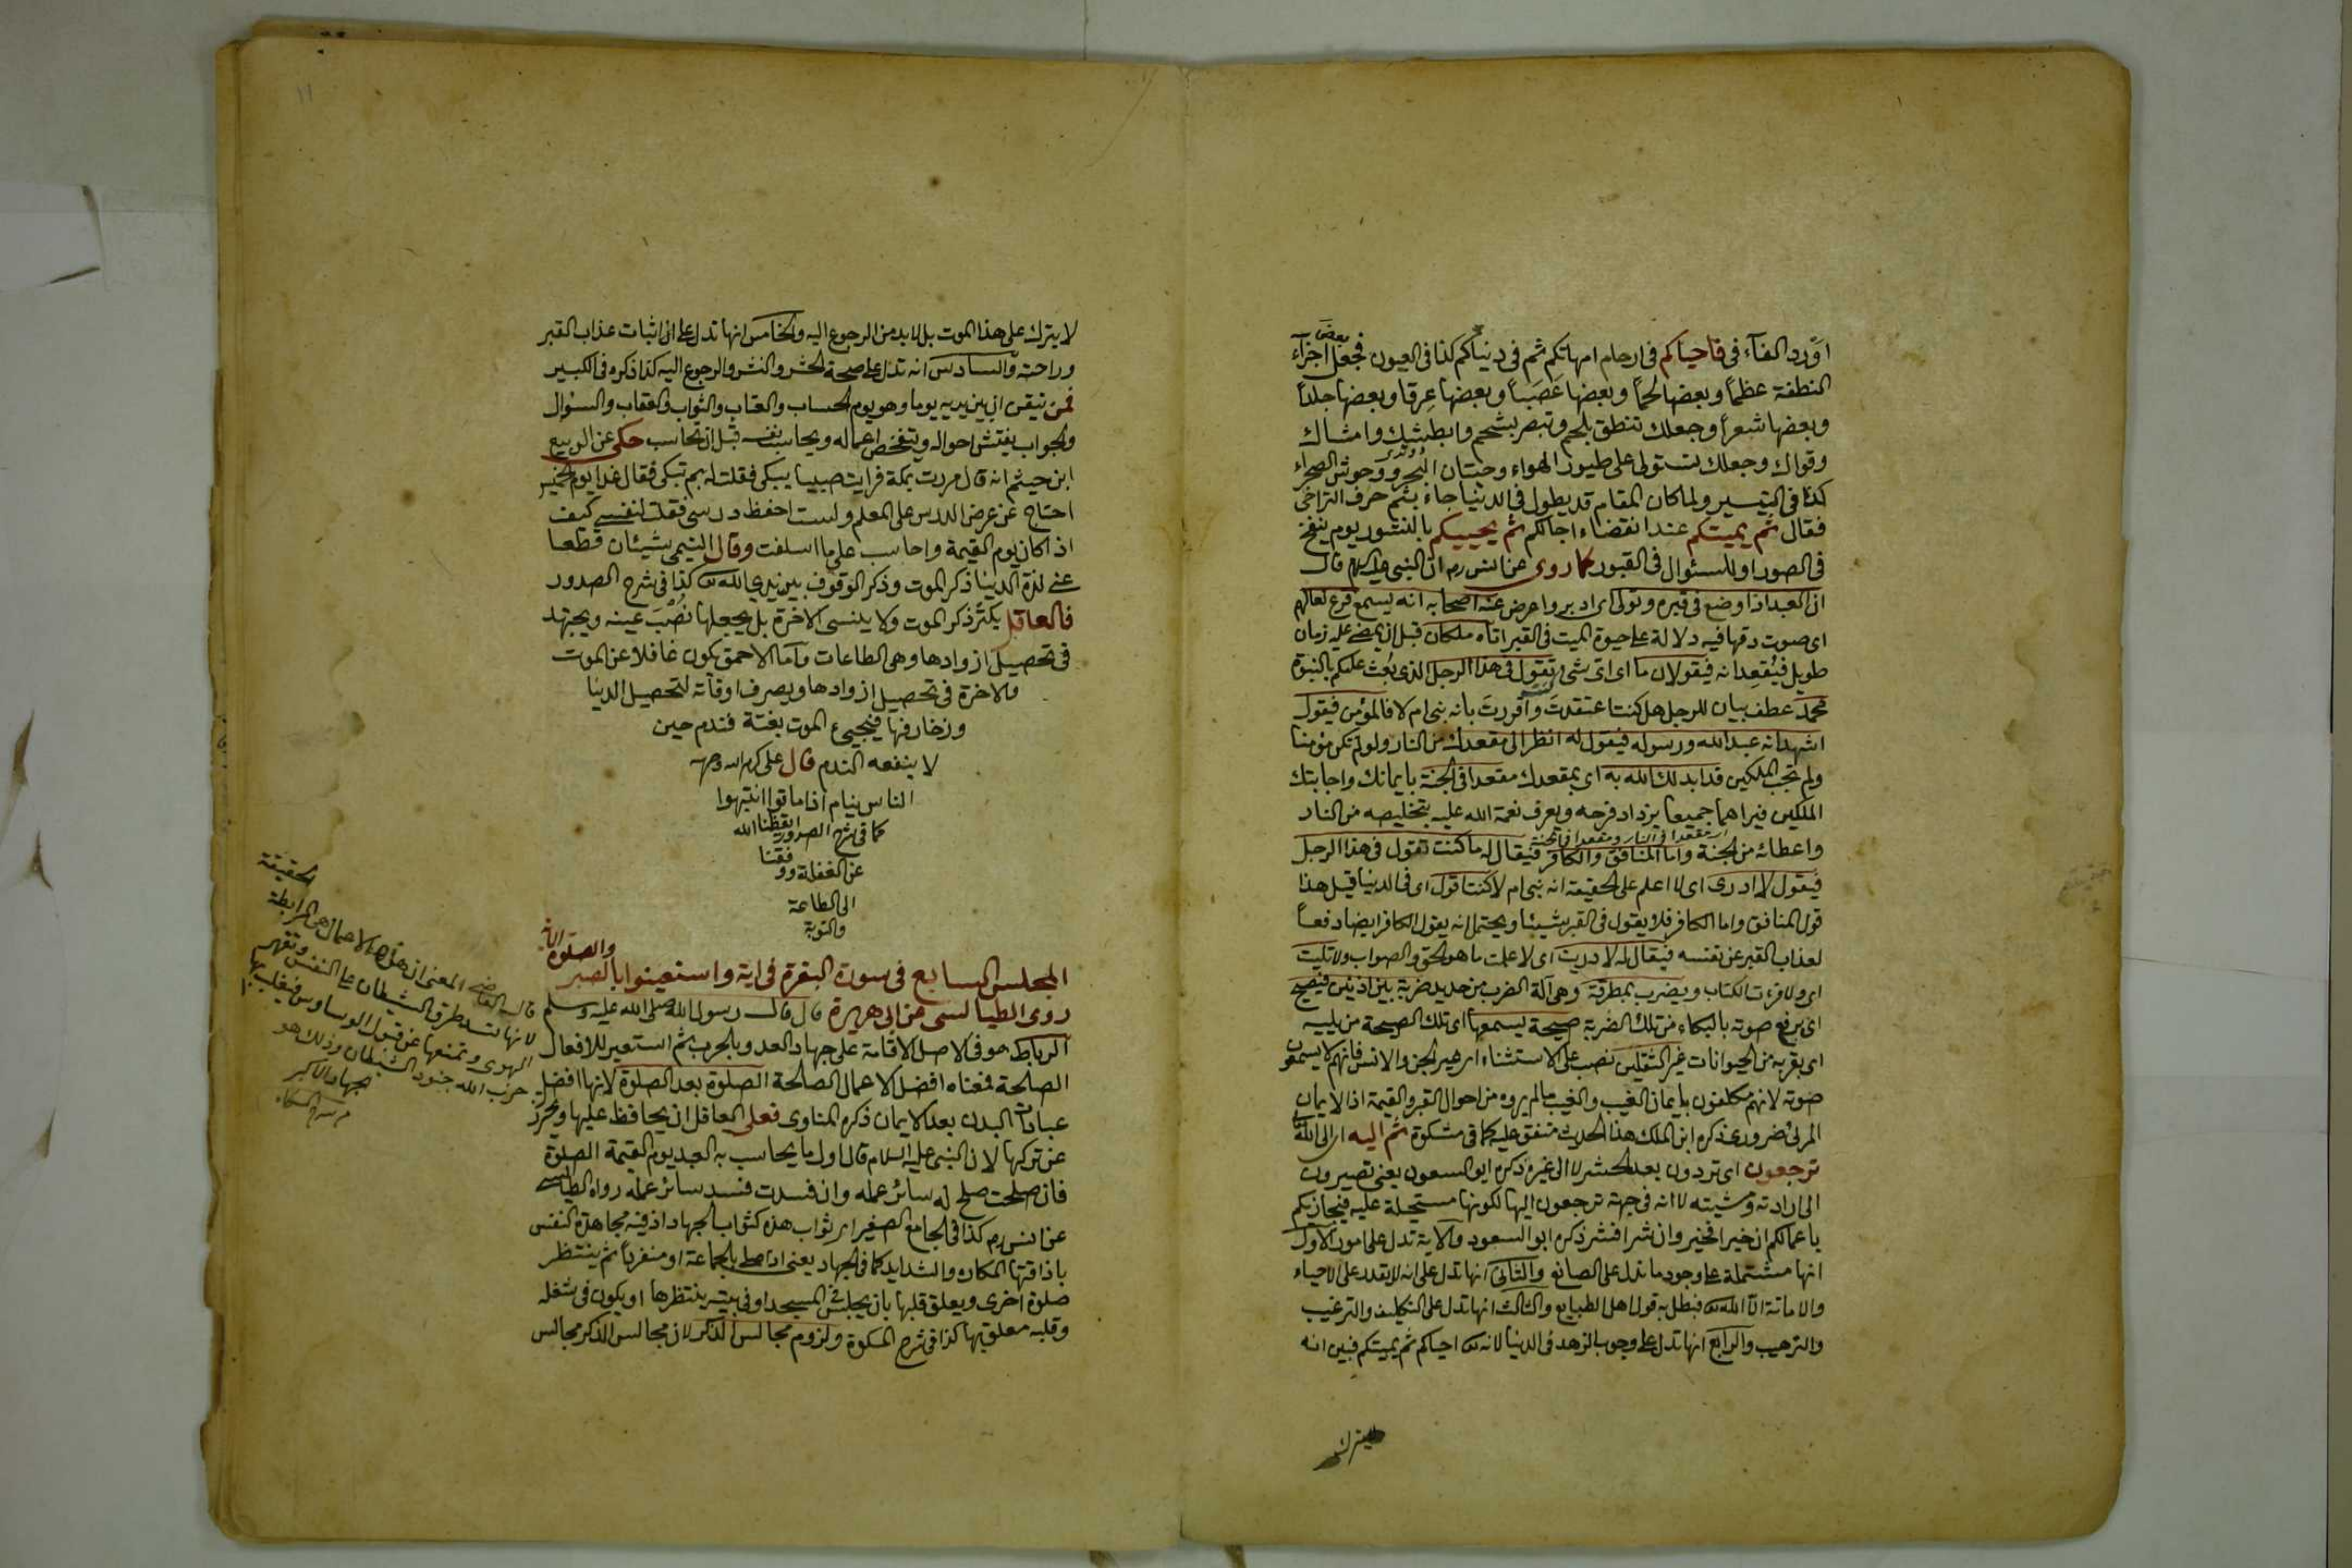 اورد الفاء في فاحياكم في ارحام امهاتكم ثم في دنياكم كذا في العيون فجعل بعض اجزاء
النطفة عظماً وبعضها لحماً وبعضها عَصَباً وبعضها عِرقا وبعضها جلداً
وبعضها شعراً وجعلك تنطق بلحم وتبصر بشحم وامشاك
وقواك وجعلك تستولى على طيور الهواء وحيتان البحر ووحوش الصحراء
كذا في التيسير ولما كان المقام قد يطول في الدنيا جاء بثم حرف التراخي
فقال ثم يميتكم عند انقضاء اجالكم ثم يحييكم بالنشور يوم ينفخ
في الصور او للسئوال في القبور كما روى عن انس رم ان النبي عليه السلام قال
ان العبد اذا وضع في قبره وتولى اى ادبر واعرض عنه اصحابه انه ليسمع قرع نعالهم
اى صوت دقها فيه دلالة على حيوة الميت في القبر اتاه ملكان قبل ان يمضى عليه زمان
طويل فيُقعِدانه فيقولان ما اى اى شئ تقول في هذا الرجل الذى بُعث عليكم بالنبوة
محمد عطف بيان للرجل هل كنت اعتقدتَ واَقررتَ بانه نبى ام لا فالمؤمن فيقول
اشهد انه عبد الله ورسوله فيقول له انظر الى مقعدك من النار ولو لم تكن مؤمنا
ولم تجب الملكين قد ابدلك الله به اى بمقعدك مقعدا في الجنة بايمانك واجابتك
الملكين فيراهما جميعا يزداد فرحه ويعرف نعمة الله عليه بتخليصه من النار
اى مقعدا في النار ومقعدا في الجنة
واعطائه من الجنة واما المنافق والكافر فيقال له ما كنت تقول في هذا الرجل
فيقول لا ادرى اى لا اعلم على الحقيقة انه نبى ام لا كنت اقول اى في الدنيا قيل هذا
قول المنافق واما الكافر فلا يقول في القبر شيئا ويحتمل انه يقول الكافر ايضا دفعاً
لعذاب القبر عن نفسه فيقال له لا دريت اى لا علمت ما هو الحق والصواب ولا تليت
اى ولا قرءت الكتاب ويضرب بمطرقة وهى آلة الضرب من حديد ضربة بين اذنيه فيصيح
اى يرفع صوته بالبكاء من تلك الضربة صيحة يسمعها اى تلك الصيحة من يليه
اى بقربه من الحيوانات غير الثقلين نصب على الاستثناء اى غير الجن والانس فانهم لا يسمعون
صوته لانهم مكلفون بايمان الغيب والغيب ما لم يروه من احوال القبر والقيمة اذ الايمان
المرئى ضرورى ذكره ابن الملك هذا الحديث متفق عليه كما في مشكوة ثم اليه اى الى الله
ترجعون اى تردون بعد الحشر لا الى غيره ذكره ابو السعود يعنى تصيرون
الى ارادته ومشيته لا انه في جهة ترجعون اليها لكونها مستحيلة عليه فيجازيكم
باعمالكم ان خيرا فخير وان شرا فشر ذكره ابو السعود والاية تدل على امور الاول
انها مشتملة على وجود ما تدل على الصانع والثانى انها تدل على انه لا يقدر على الاحياء
والاماتة الا الله فبطل به قول اهل الطبايع والثالث انها تدل على التكليف والترغيب
والترهيب والرابع انها تدل على وجوب الزهد في الدنيا لانه احياكم ثم يميتكم فبين انه
لا يترك على هذا الموت بل لا بد من الرجوع اليه والخامس انها تدل على اثبات عذاب القبر
وراحته والسادس انه تدل على صحة الحشر والنشر والرجوع اليه كذا ذكره في الكبير
فمن تيقن ان بين يديه يوما وهو يوم الحساب والعتاب والثواب والعقاب والسئوال
والجواب يفتش احواله ويتفحص اعماله ويحاسب نفسه قبل ان يحاسب حكى عن الربيع
ابن خيثم انه قال مررت بمكة فرايت صبيا يبكى فقلت له بم تبكى فقال غدا يوم الخميس
احتاج عن عرض الدرس على المعلم ولست احفظ درسى فقلت لنفسى كيف
اذا كان يوم القيمة واحاسب على ما اسلفت وقال التيمى شيئان قطعا
عنى لذة الدنيا ذكر الموت وذكر الوقوف بين يدى الله كذا في شرح الصدور
فالعاقل يكثر ذكر الموت ولا ينسى الاخرة بل يجعلها نُصْبَ عينه ويجتهد
في تحصيل ازوادها وهى الطاعات واما الاحمق يكون غافلا عن الموت
والاخرة في تحصيل ازوادها ويصرف اوقاته لتحصيل الدنيا
وزخارفها فيجيئ الموت بغتة فندم حين
لا ينفعه الندم قال على كرم الله وجهه
الناس نيام اذا ماتوا انتبهوا
كما في شرح الصدور ايقظنا الله
عن الغفلة ووفقنا
الى الطاعة
والتوبة
المجلس السابع في سورة البقرة في اية واستعينوا بالصبر والصلوة الاية
روى الطيالسى عن ابى هريرة قال قال رسول الله صلى الله عليه وسلم
الرباط هو في الاصل الاقامة على جهاد العدو بالحرب ثم استعير للافعال
الصالحة فمعناه افضل الاعمال الصالحة الصلوة بعد الصلوة لانها افضل
عبادات البدن بعد الايمان ذكره المناوى فعلى العاقل ان يحافظ عليها ويحرز
عن تركها لان النبى عليه السلام قال اول ما يحاسب به العبد يوم القيمة الصلوة
فان صلحت صلح له سائر عمله وان فسدت فسد سائر عمله رواه الطيالسى
عن انس رم كذا في الجامع الصغير اى ثواب هذه كثواب الجهاد اذ فيه مجاهدة النفس
باذاقتها المكاره والشدايد كما في الجهاد يعنى اذا صلى بالجماعة او منفردا ثم ينتظر
صلوة اخرى ويعلق قلبها بان يجلس في المسجد او في بيته ينتظرها او يكون في شغله
وقلبه معلق بها كذا في شرح المشكوة ولزوم مجالس الذكر لان مجالس الذكر مجالس
قال القاضى المعنى ان هذه الاعمال هى المرابطة الحقيقة
لانها تسد طرق الشيطان على النفس وتقهر
الهوى وتمنعها عن قبول الوساوس فيغلب بها
حزب الله جنود الشيطان وذلك هو
جهاد الاكبر